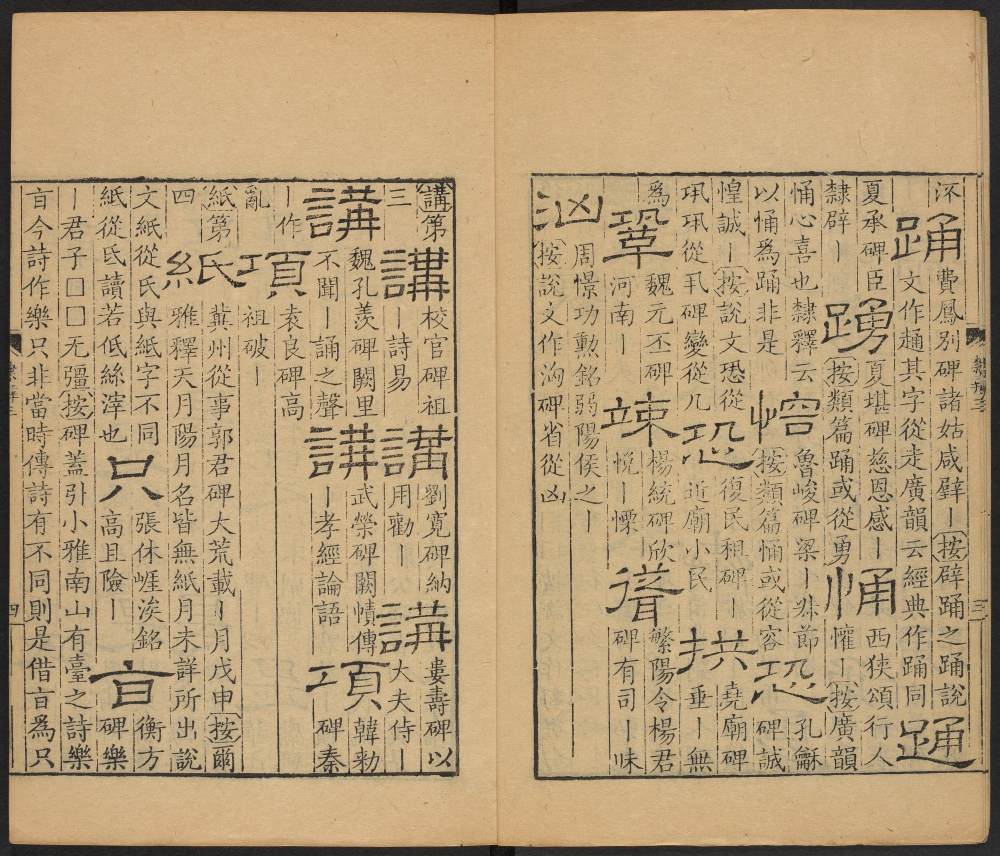 踊 費鳳別碑諸姑咸擗丨按擗踊之踊說
文作趰其字從走廣韻云經典作踊同 踊
夏承碑臣 踴 夏堪碑慈恩感丨 悀 西狹頌行人
隸辟丨 按類篇踊或從勇 懽丨按廣韻
悀心喜也隸釋云 㦷 魯峻碑梁丨殊節 恐 孔龢
以悀爲踊非是 按類篇悀或從容 碑誠
惶誠丨按說文恐從 恐 復民租碑丨 拱 堯廟碑
巩巩從丮碑變從几 近廟小民 垂丨無
爲 鞏 魏元丕碑 竦 楊統碑欣 繁陽令楊君
河南丨 悅丨慄 碑有司丨昧
洶 周憬功勲銘弱陽侯之丨
按說文作洶碑省從凶
講第 講 校官碑祖 講 劉寬碑納 講 婁壽碑以
三 丨詩易 用勸丨 大夫侍丨
講 魏孔羨碑闕里 講 武榮碑闕幘傳 項 韓勑
不聞丨誦之聲 丨孝經論語 碑秦
丨作 項 袁良碑高
亂 祖破丨
紙第 紙 冀州從事郭君碑大荒載丨月戊申按爾
四 雅釋天月陽月名皆無紙月未詳所出說
文紙從氏與紙字不同 只 張休崕涘銘 旨 衡方
紙從氐讀若低絲滓也 高且險丨 碑樂
丨君子□□无彊按碑蓋引小雅南山有臺之詩樂
旨今詩作樂只非當時傳詩有不同則是借旨爲只
三
四